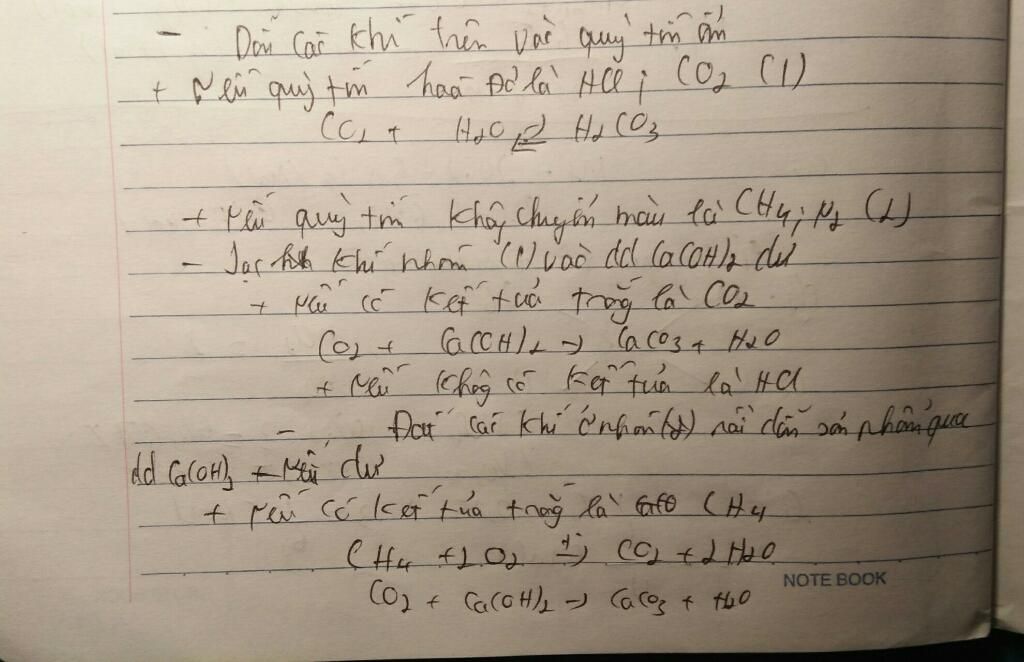 - Dẫn các khí trên vào quỳ tím ẩm
+ Nếu quỳ tím hoá đỏ là HCl; CO2 (1)
CO2 + H2O ⇌ H2CO3
+ Nếu quỳ tím không chuyển màu là CH4; N2 (2)
- Sục khí nhóm (1) vào dd Ca(OH)2 dư
+ Nếu có kết tủa trắng là CO2
CO2 + Ca(OH)2 → CaCO3 + H2O
+ Nếu không có kết tủa là HCl
- Đốt các khí ở nhóm (2) rồi dẫn sản phẩm qua
dd Ca(OH)2 dư
+ Nếu có kết tủa trắng là CH4
CH4 + 2O2 →t° CO2 + 2H2O
NOTE BOOK
CO2 + Ca(OH)2 → CaCO3 + H2O